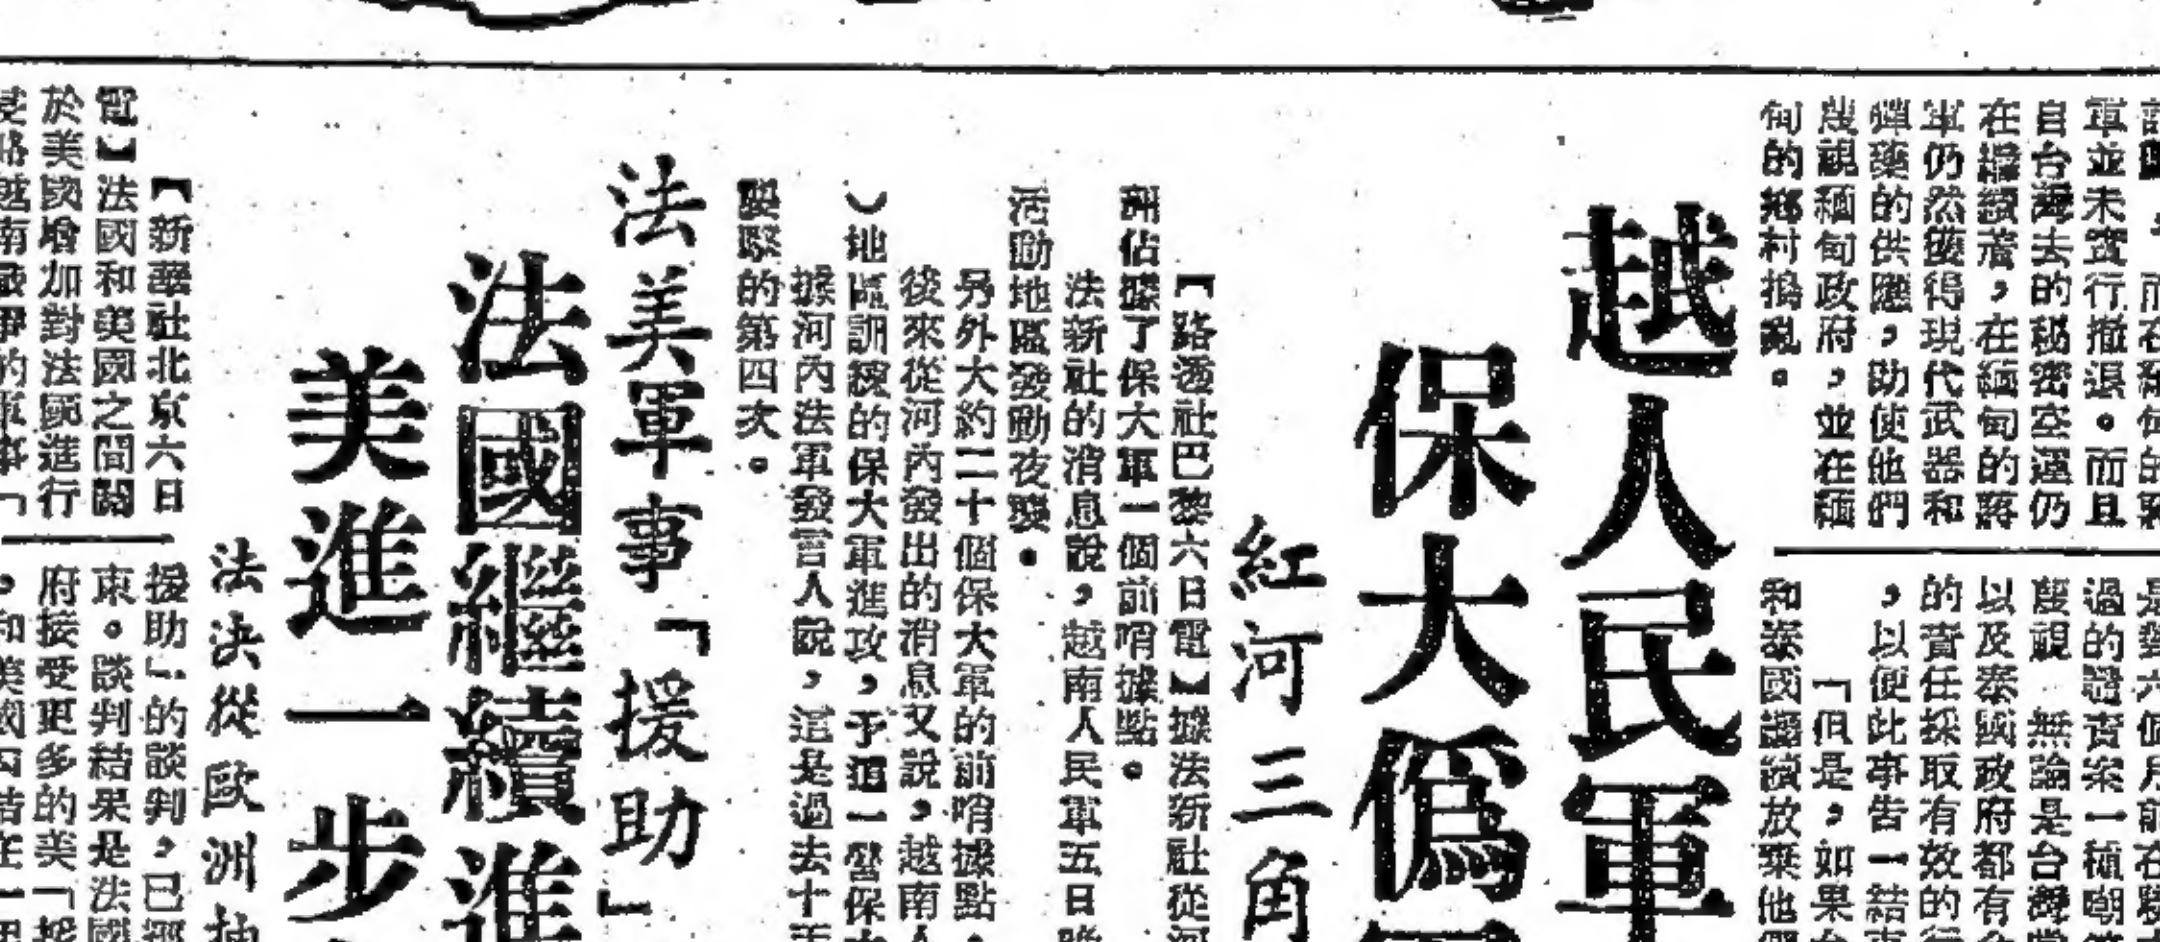 軍並未實行撤退。而且
自台灣去的秘密空運仍
在繼續着，在緬甸的蔣
軍仍然獲得現代武器和
彈藥的供應，助使他們
蔑視緬甸政府，並在緬
甸的鄉村搗亂。
過的譴責案一種嘲
蔑視 無論是台灣當
以及泰國政府都有
的責任採取有效的行
，以便此事告一結束
「但是，如果
和泰國繼續放棄他們
越人民軍
保大偽軍
紅河三角
【路透社巴黎六日電】據法新社從河
佔據了保大軍一個前哨據點。
法新社的消息說，越南人民軍五日晚
活動地區發動夜襲。
另外大約二十個保大軍的前哨據點，
後來從河內發出的消息又說，越南人
）地區訓練的保大軍進攻，予這一營保大
據河內法軍發言人說，這是過去十天
要襲的第四次。
法美軍事「援助」
法國繼續進
美進一步
法決從歐洲抽
【新華社北京六日
電】法國和美國之間關
於美國增加對法國進行
侵略越南戰爭的軍事「
援助」的談判，已經
束。談判結果是法國
府接受更多的美「援